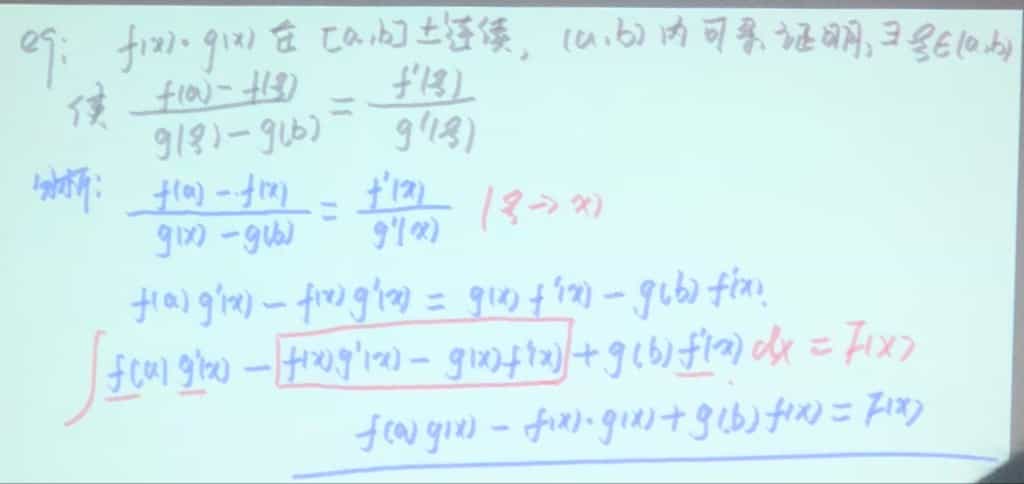 eg: f(x)·g(x) 在 [a,b] 上连续, (a,b) 内可导, 证明, ∃ξ∈(a,b)
使 \frac{f(a)-f(ξ)}{g(ξ)-g(b)} = \frac{f'(ξ)}{g'(ξ)}
分析: \frac{f(a)-f(x)}{g(x)-g(b)} = \frac{f'(x)}{g'(x)} (ξ→x)
f(a)g'(x) - f(x)g'(x) = g(x)f'(x) - g(b)f'(x).
∫ f(a)g'(x) - f(x)g'(x) - g(x)f'(x) + g(b)f'(x) dx = F(x)
f(a)g(x) - f(x)·g(x) + g(b)f(x) = F(x)